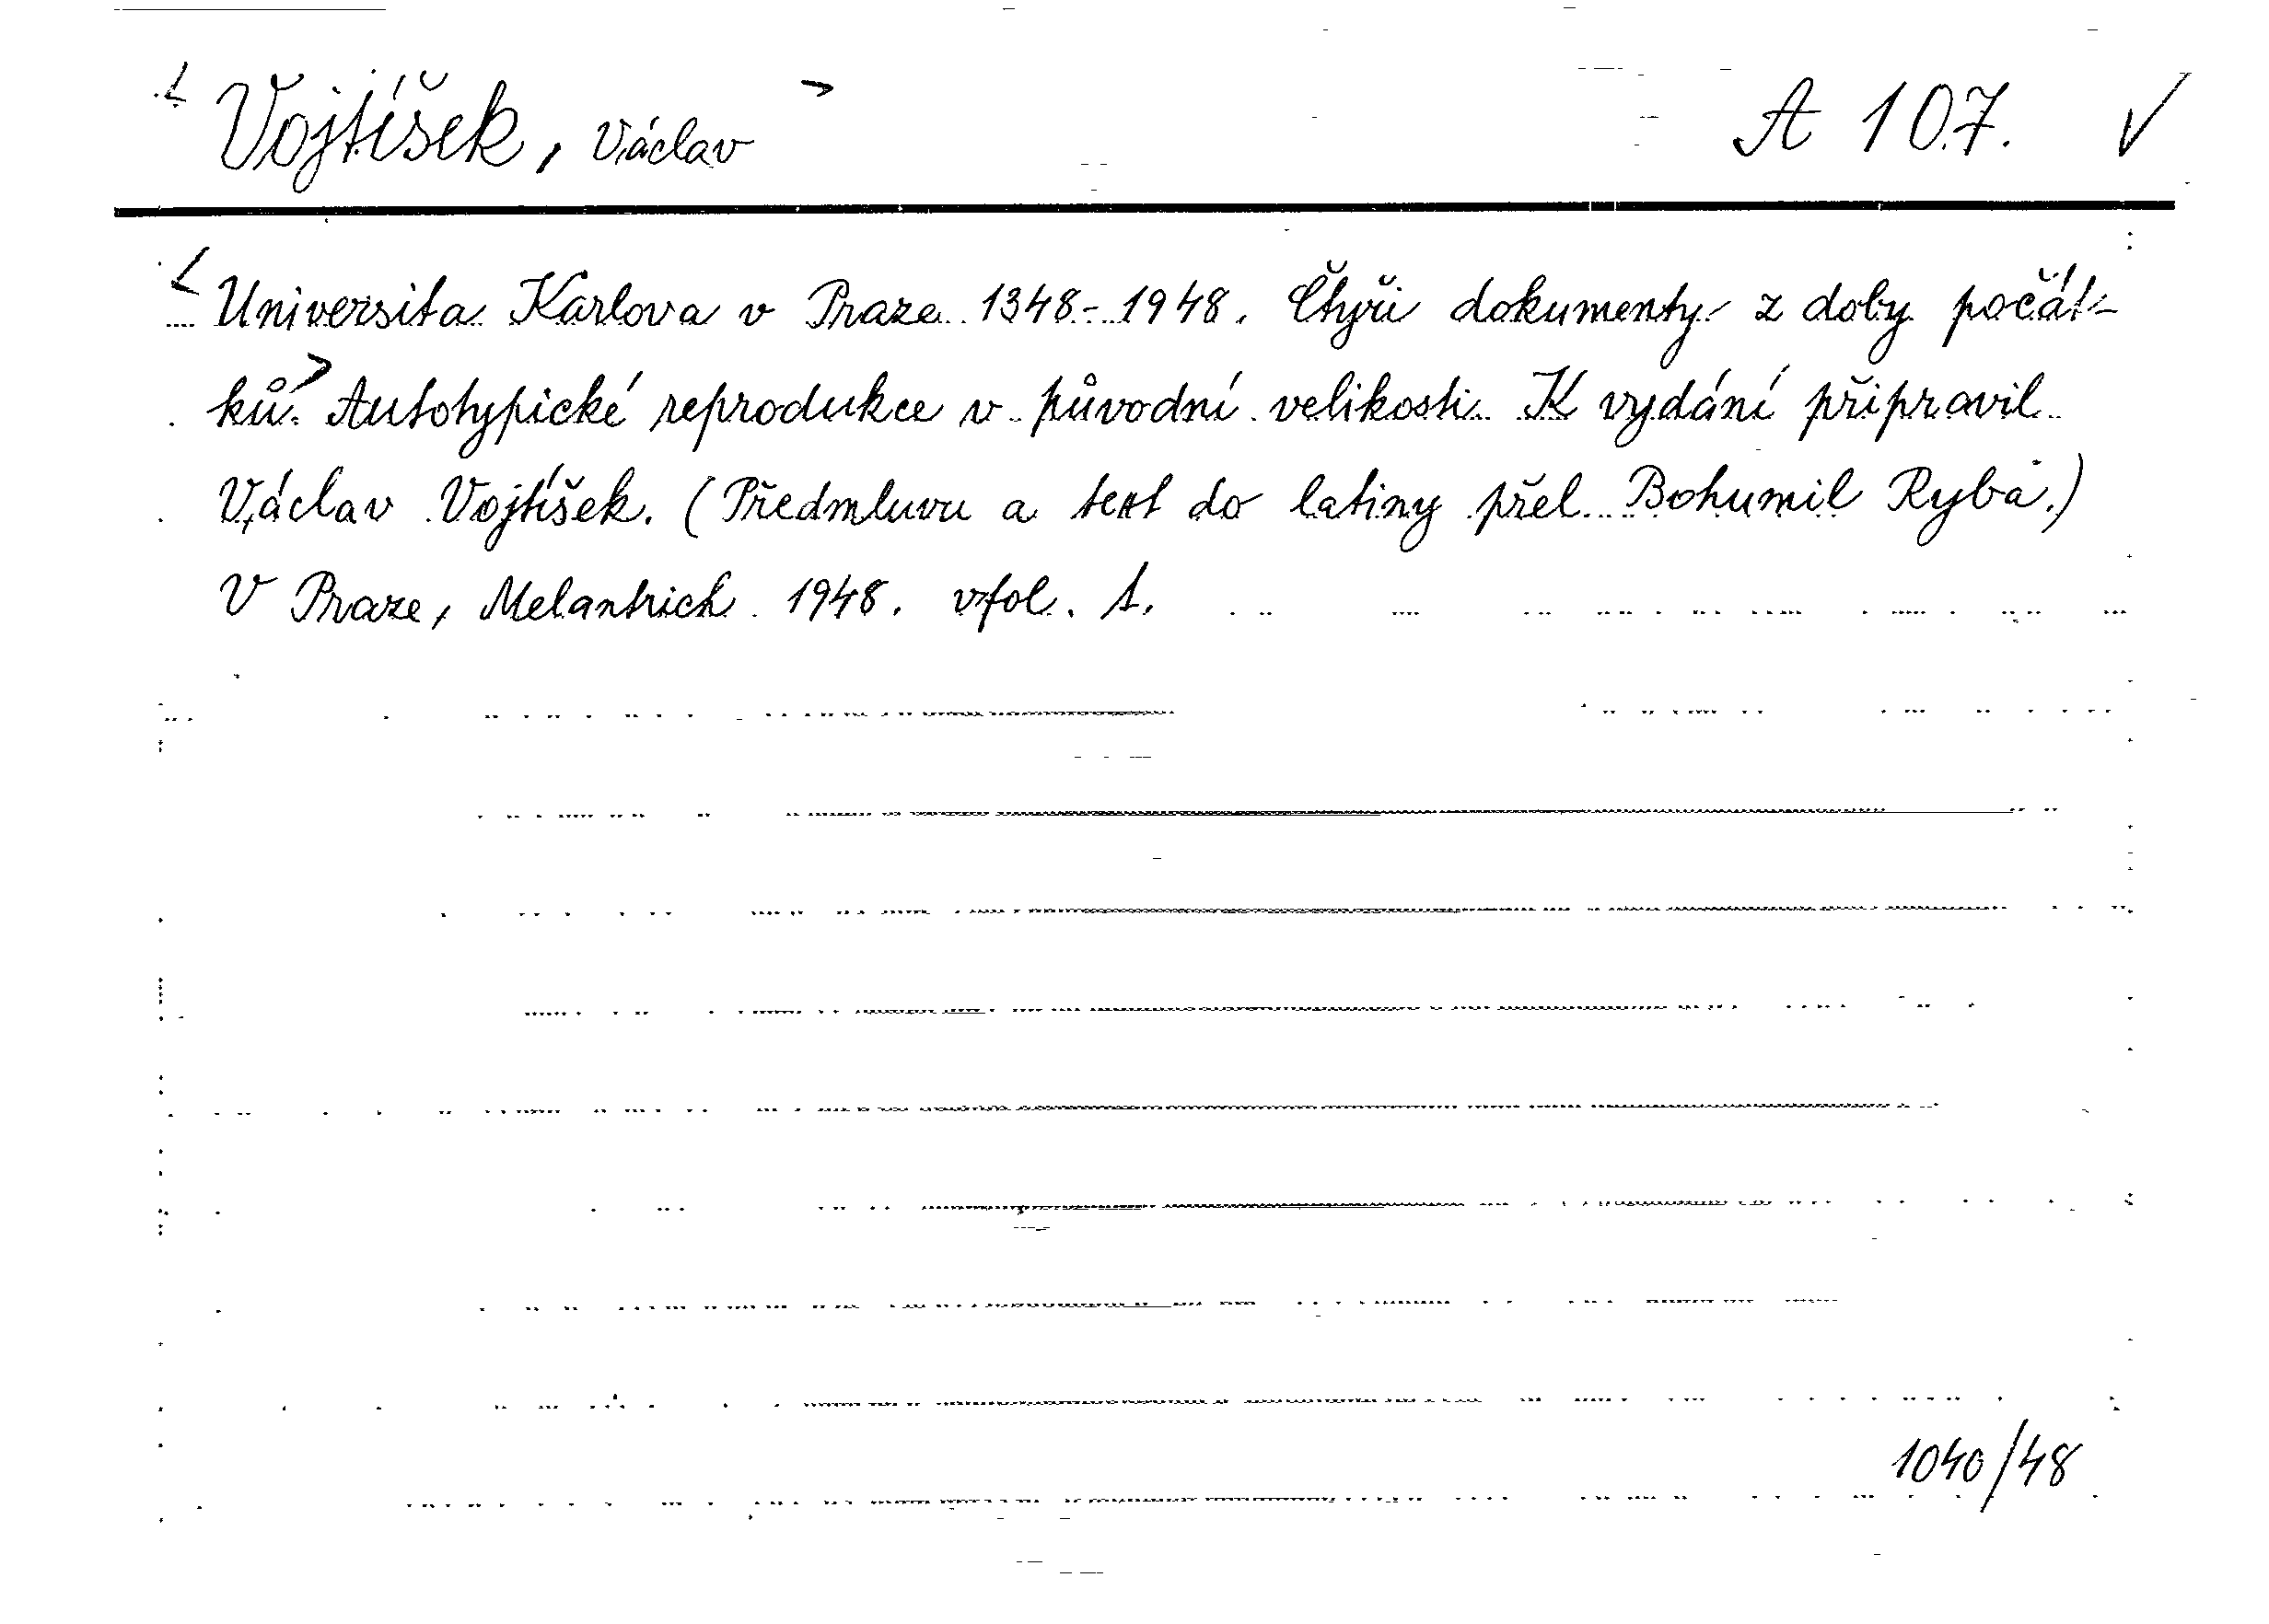 < Vojtíšek, Václav > A 107. ✓
< Universita Karlova v Praze 1348-1948. Čtyři dokumenty z doby počát-
ků.> Autotypické reprodukce v původní velikosti. K vydání připravil
Václav Vojtíšek. (Předmluvu a text do latiny přel. Bohumil Ryba.)
V Praze, Melantrich 1948. vfol. 1.
1040/48